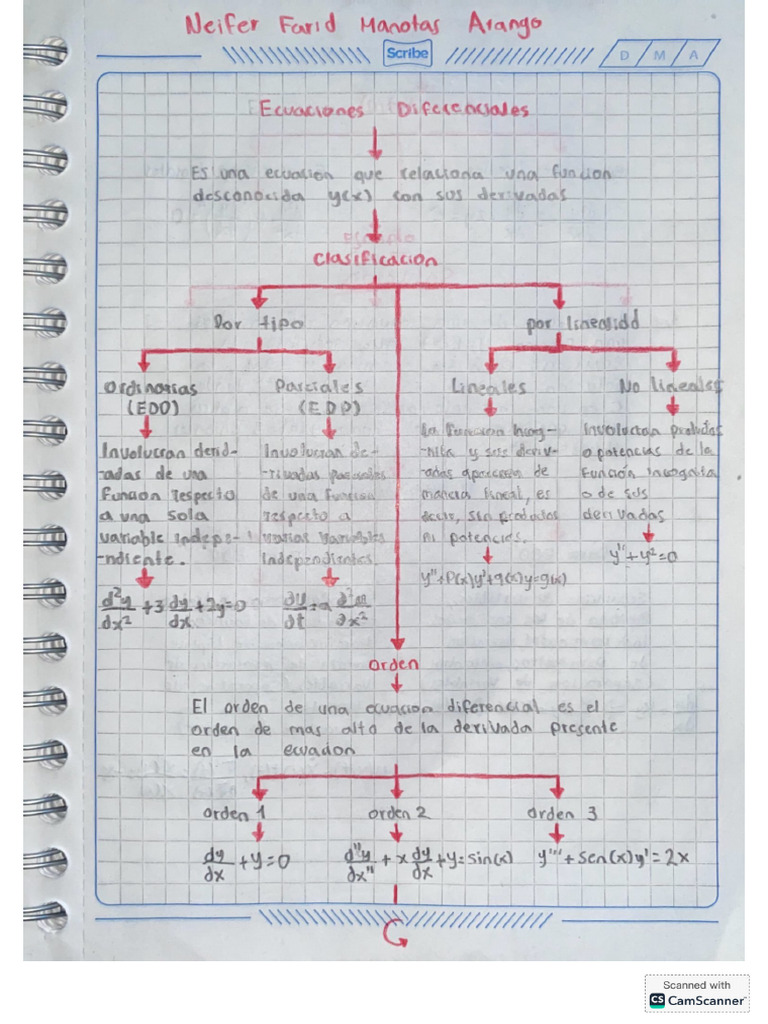 Neifer Farid Manotas Arango
Scribe
D M A
Ecuaciones Diferenciales
Es una ecuacion que relaciona una funcion
desconocida y(x) con sus derivadas
Clasificacion
Por tipo
por linealidd
Ordinarias
(EDO)
Parciales
(EDP)
Lineales
No lineales
Involucran derid-
-adas de una
funcion respecto
a una sola
variable indepe-
-ndiente.
d²y/dx² + 3 dy/dx + 2y=0
Involucran de-
-rivadas parciales
de una funcion
respecto a
varias variables
independientes.
∂u/∂t = α ∂²u/∂x²
La funcion incog-
-nita y sus deriv-
-adas aparecen de
manera lineal, es
decir, sin productos
ni potencias.
y''+P(x)y'+q(x)y=g(x)
Involucran productos
o potencias de la
función incognita
o de sus
derivadas
y''+y²=0
Orden
El orden de una ecuacion diferencial es el
orden de mas alto de la derivada presente
en la ecuacion
orden 1
orden 2
orden 3
dy/dx + y=0
d''y/dx'' + x dy/dx + y=sin(x)
y'''+sen(x)y'=2x
Scanned with
CS CamScanner